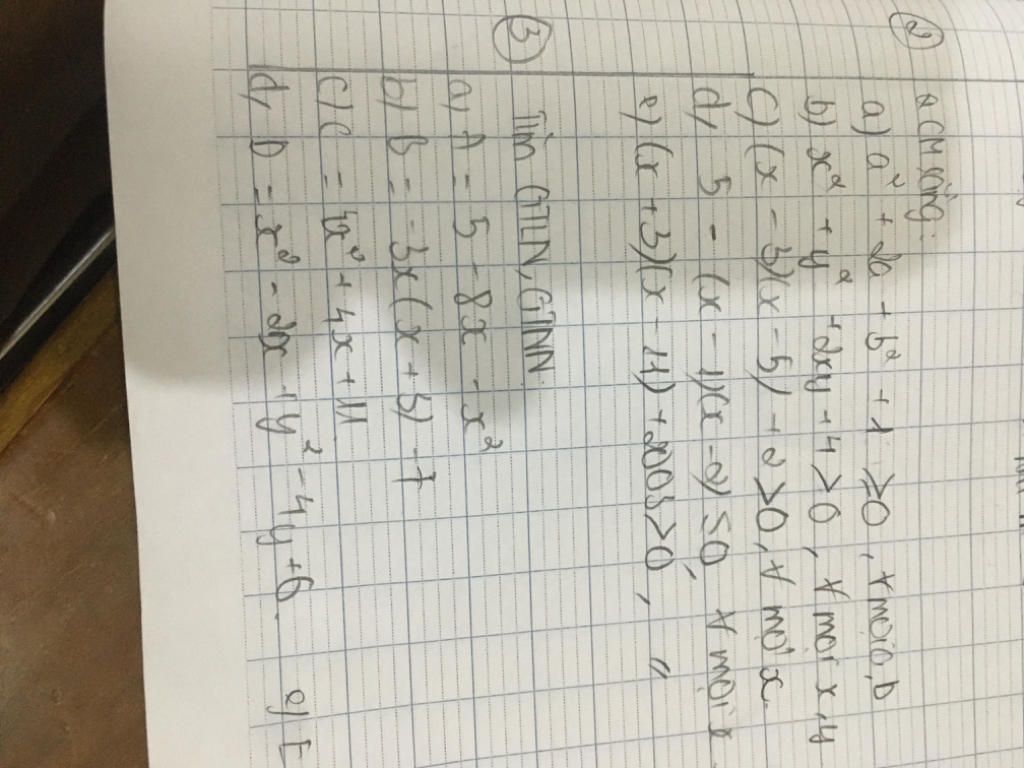 ② CM rằng:
a) a² + 2a + b² + 1 ≥ 0, ∀ mọi a, b
b) x² + y² + 2xy + 4 > 0, ∀ mọi x, y
c) (x - 3)(x - 5) + 2 > 0, ∀ mọi x
d, 5 - (x - 1)(x - 2) ≤ 0, ∀ mọi x
e) (x + 3)(x - 11) + 2003 > 0, "
③ Tìm GTLN, GTNN:
a, A = 5 - 8x - x²
b) B = -3x(x + 3) - 7
c) C = 4x² + 4x + 11
d, D = x² - 2x + y² - 4y + 6 e) E